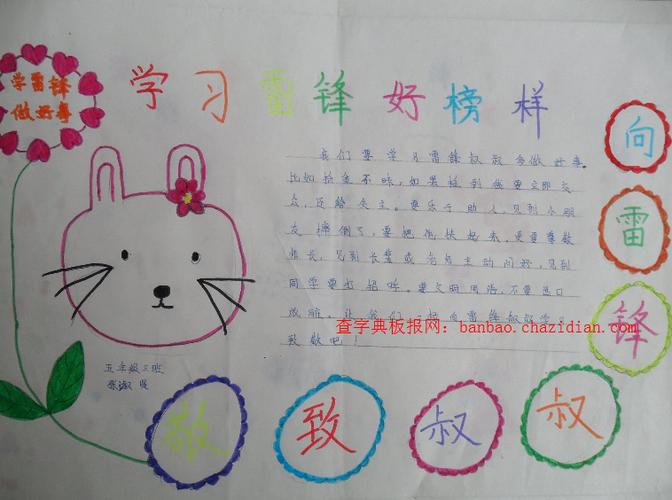 学雷锋
做好事
学习雷锋好榜样
我们要学习雷锋叔叔多做好事。
比如拾金不昧，如果捡到钱要立即交
，还给失主。要乐于助人，见到小朋
友摔倒了，要把他扶起来，更要尊敬
师长，见到长辈或老师主动问好，见到
同学要打招呼。要文明用语，不要出口
成脏。让我们一起向雷锋叔叔学习
致敬吧！
查字典板报网：banbao.chazidian.com
五年级三班
向
雷
锋
叔
叔
致
敬